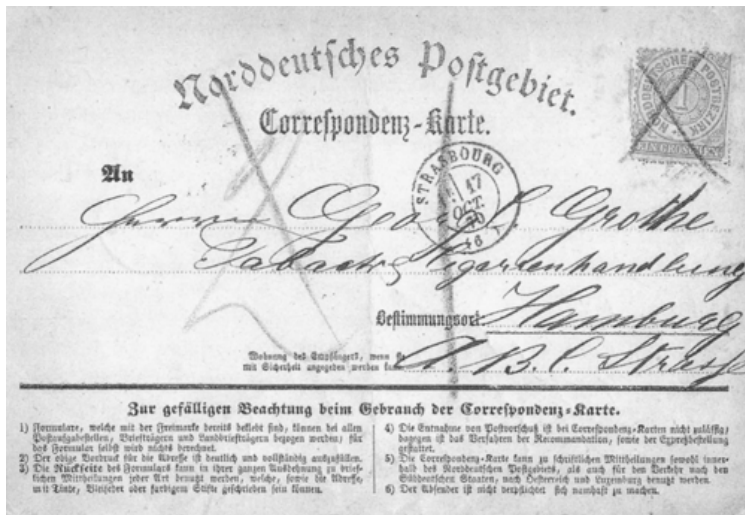 Norddeutsches Postgebiet.
Correspondenz-Karte.
NORDDEUTSCHER POSTBEZIRK
1
EIN GROSCHEN
An
STRASBOURG
17
OCT.
70
Herrn Georg C. Grothe
Tabac & Cigarrenhandlung
Bestimmungsort: Hamburg
Wohnung des Empfängers, wenn sie
mit Sicherheit angegeben werden kann
A. B. C. Strasse
Zur gefälligen Beachtung beim Gebrauch der Correspondenz-Karte.
1) Formulare, welche mit der Freimarke bereits beklebt sind, können bei allen
Postaufgabestellen, Briefträgern und Landbriefträgern bezogen werden; für
das Formular selbst wird nichts berechnet.
2) Der obige Vordruck für die Adresse ist deutlich und vollständig auszufüllen.
3) Die Rückseite des Formulars kann in ihrer ganzen Ausdehnung zu brief-
lichen Mittheilungen jeder Art benutzt werden, welche, sowie die Adresse,
mit Tinte, Bleifeder oder farbigem Stifte geschrieben sein können.
4) Die Entnahme von Postvorschuß ist bei Correspondenz-Karten nicht zulässig;
dagegen ist das Verfahren der Recommandation, sowie der Expreßbestellung
gestattet.
5) Die Correspondenz-Karte kann zu schriftlichen Mittheilungen sowohl inner-
halb des Norddeutschen Postgebiets, als auch für den Verkehr nach den
Süddeutschen Staaten, nach Oesterreich und Luxemburg benutzt werden.
6) Der Absender ist nicht verpflichtet sich namhaft zu machen.